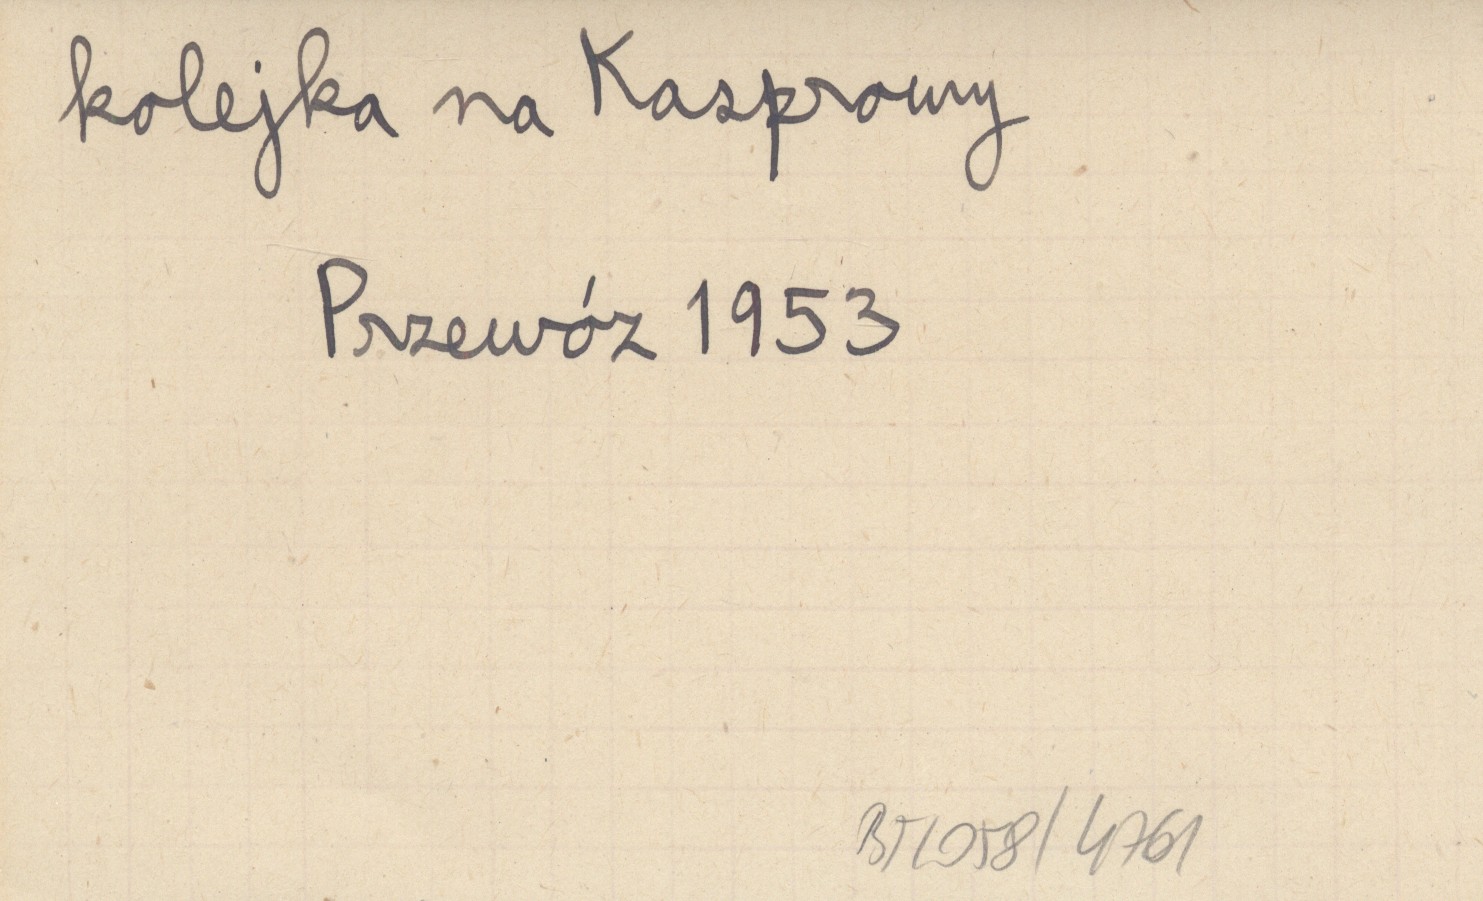 kolejka na Kasprowy
Przewóz 1953
4761